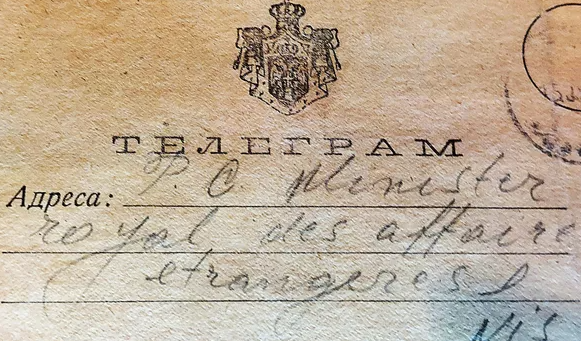 ТЕЛЕГРАМ
Адреса: P. C. Minister
royal des affaire
etrangeres
Nis